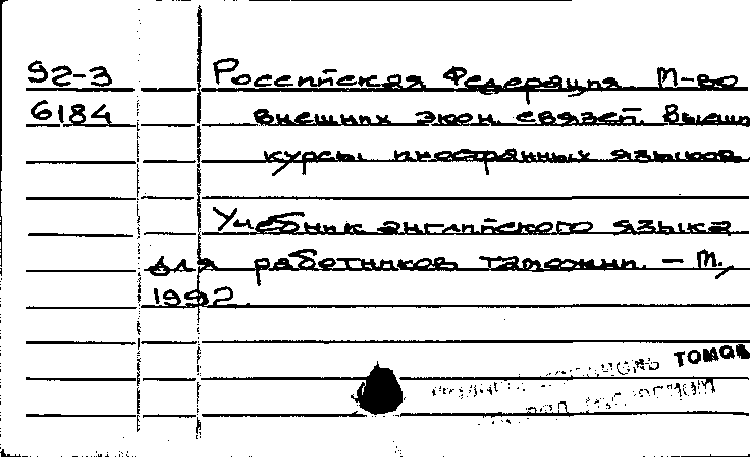 92-3 Российская Федерация. М-во
6184 внешних экон. связей. Высш
курсы иностранных языков.
Учебник английского языка
для работников таможни. – М.,
1992.
ТОМОВ